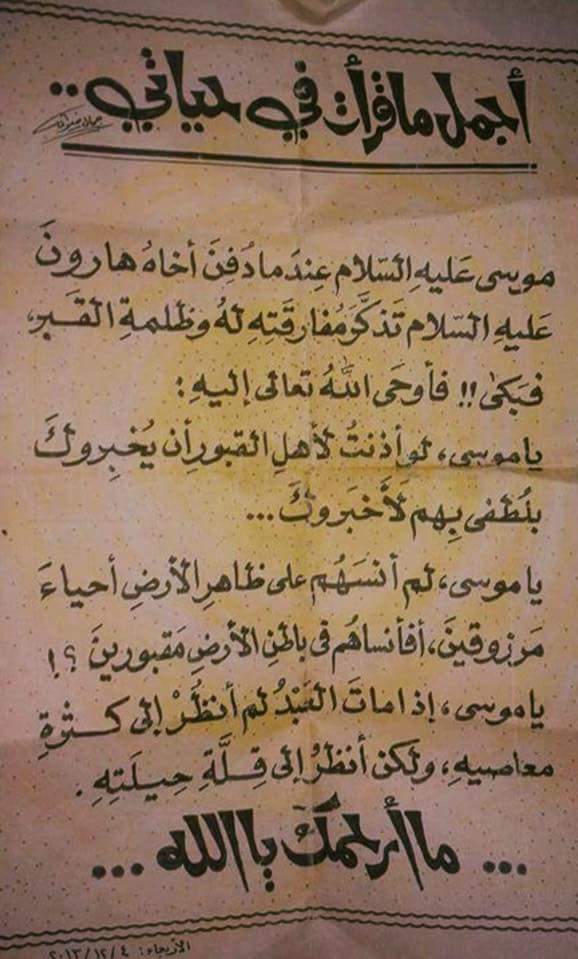 أجمل ما قرأت في حياتي..
موسى عَليهِ السّلام عِندما دُفِنَ أخاهُ هارونَ
عَليهِ السّلام تَذكَّرَ مُفارقَتِهِ لهُ وظلمةِ القَبرِ،
فبَكى!! فأوحَى اللّٰهُ تعالى إليهِ:
ياموسى، لو أذنتُ لأهلِ القبورِ أن يُخبِروكَ
بلُطفي بِهم لَأَخبَروكَ...
ياموسى، لم أنسَهُم على ظاهرِ الأرضِ أحياءَ
مَرزوقينَ، أفأنساهُم في باطنِ الأرضِ مَقبورينَ؟!
ياموسى، إذا ماتَ العَبْدُ لم أنظُرْ إلى كثرةِ
معاصيهِ، ولكن أنظرُ إلى قِلَّةِ حِيلَتِهِ.
... ما أرحمكَ يا الله ...
الأربعاء: ٢٠١٣/١٢/٤